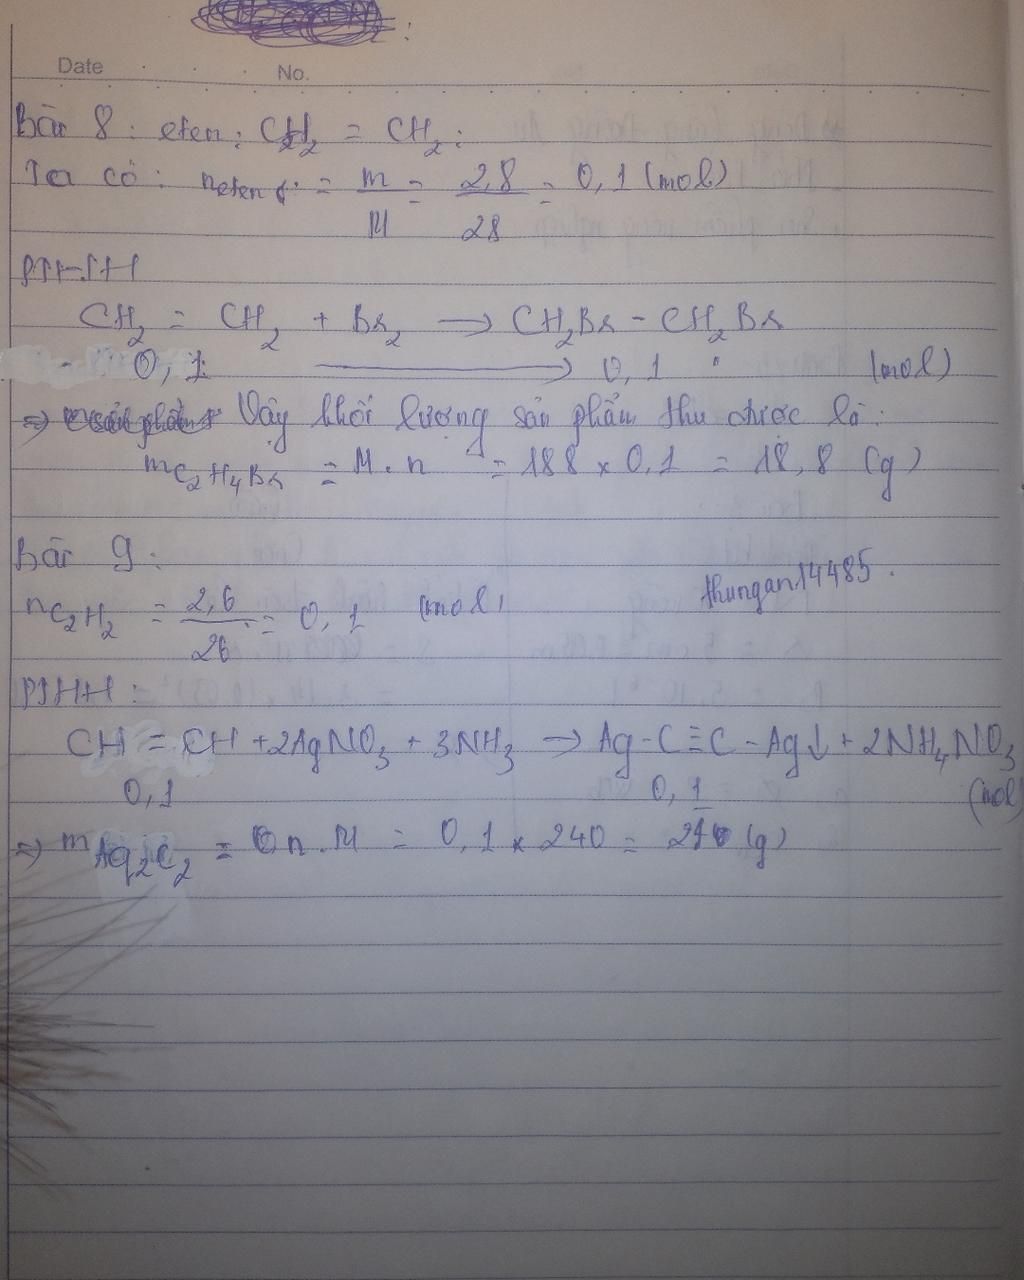 Date No.
Bài 8: eten: CH2 = CH2:
Ta có: neten = m/M = 2,8/28 = 0,1 (mol)
PTHH
CH2 = CH2 + Br2 → CH2Br - CH2Br
0,1 → 0,1 (mol)
=> Vậy khối lượng sản phẩm thu được là:
mC2H4Br = M.n = 188 x 0,1 = 18,8 (g)
Bài 9:
nC2H2 = 2,6/26 = 0,1 (mol)
thungan14485.
PTHH:
CH = CH + 2AgNO3 + 3NH3 → Ag-C≡C-Ag↓ + 2NH4NO3
0,1 0,1 (mol)
=> mAg2C2 = n.M = 0,1 x 240 = (g)